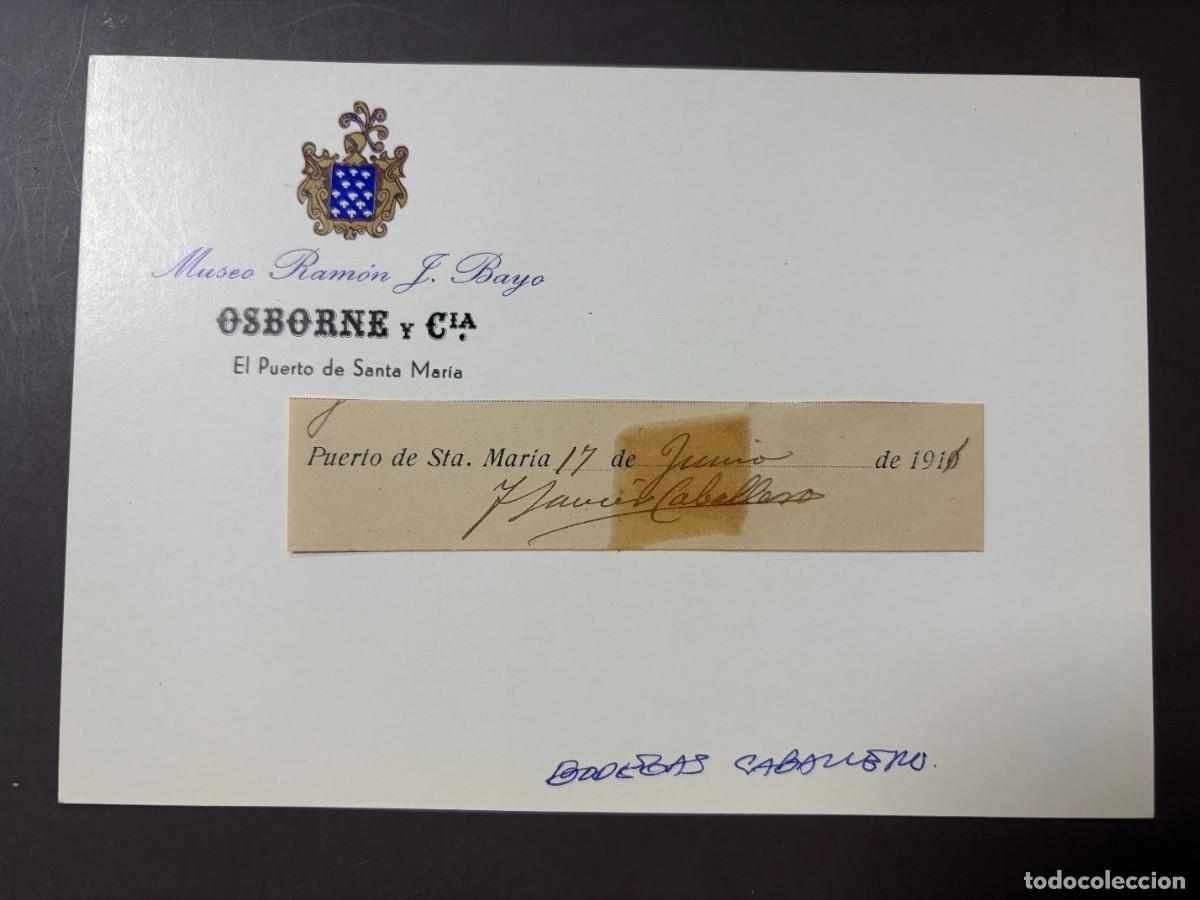 Museo Ramón J. Bayo
OSBORNE Y CIA.
El Puerto de Santa María
Puerto de Sta. María 17 de Junio de 191
Javier Caballero
BODEGAS CABALLERO.
todocoleccion